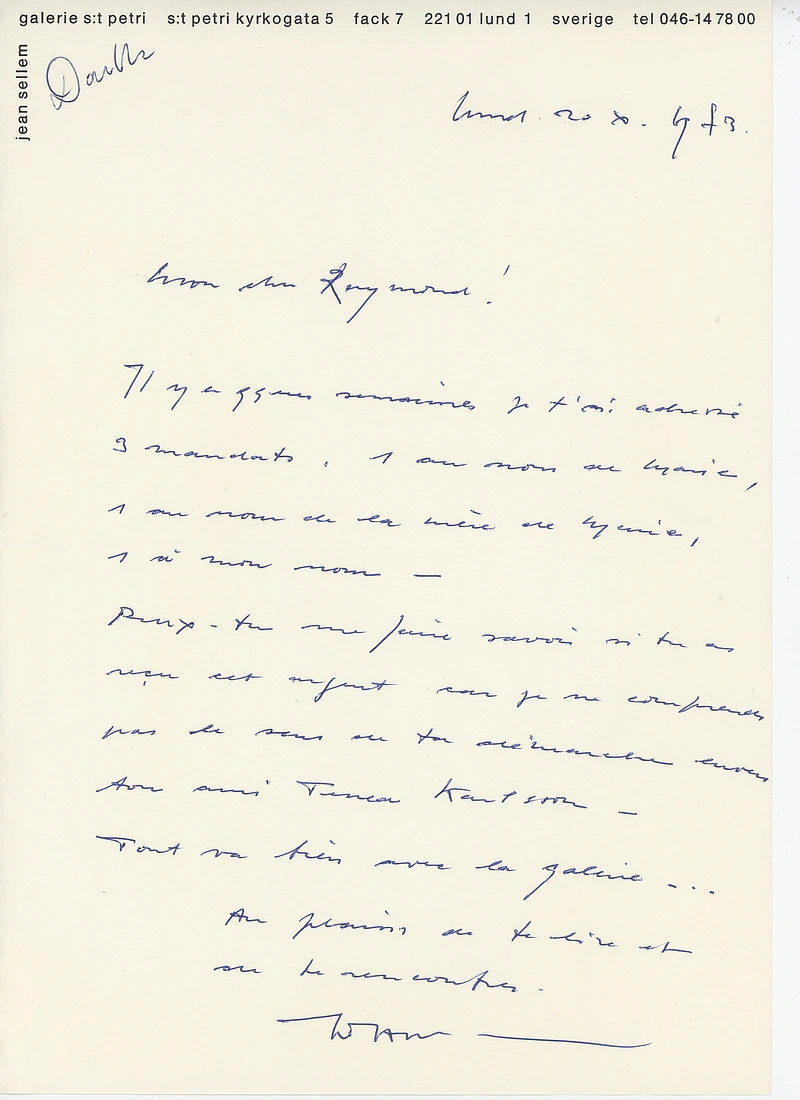 galerie s:t petri s:t petri kyrkogata 5 fack 7 221 01 lund 1 sverige tel 046-14 78 00
jean sellem
Double
Lund 20 X.
Mon cher Raymond!
Il y a qques semaines je t'ai adressé
3 mandats, 1 au nom de Marie,
1 au nom de la mère de Marie,
1 à mon nom —
Peux-tu me faire savoir si tu as
reçu cet argent car je ne comprends
pas le sens de ta démarche envers
ton ami Karlsson —
Tout va bien avec la galerie ...
Au plaisir de te lire et
de te rencontrer.